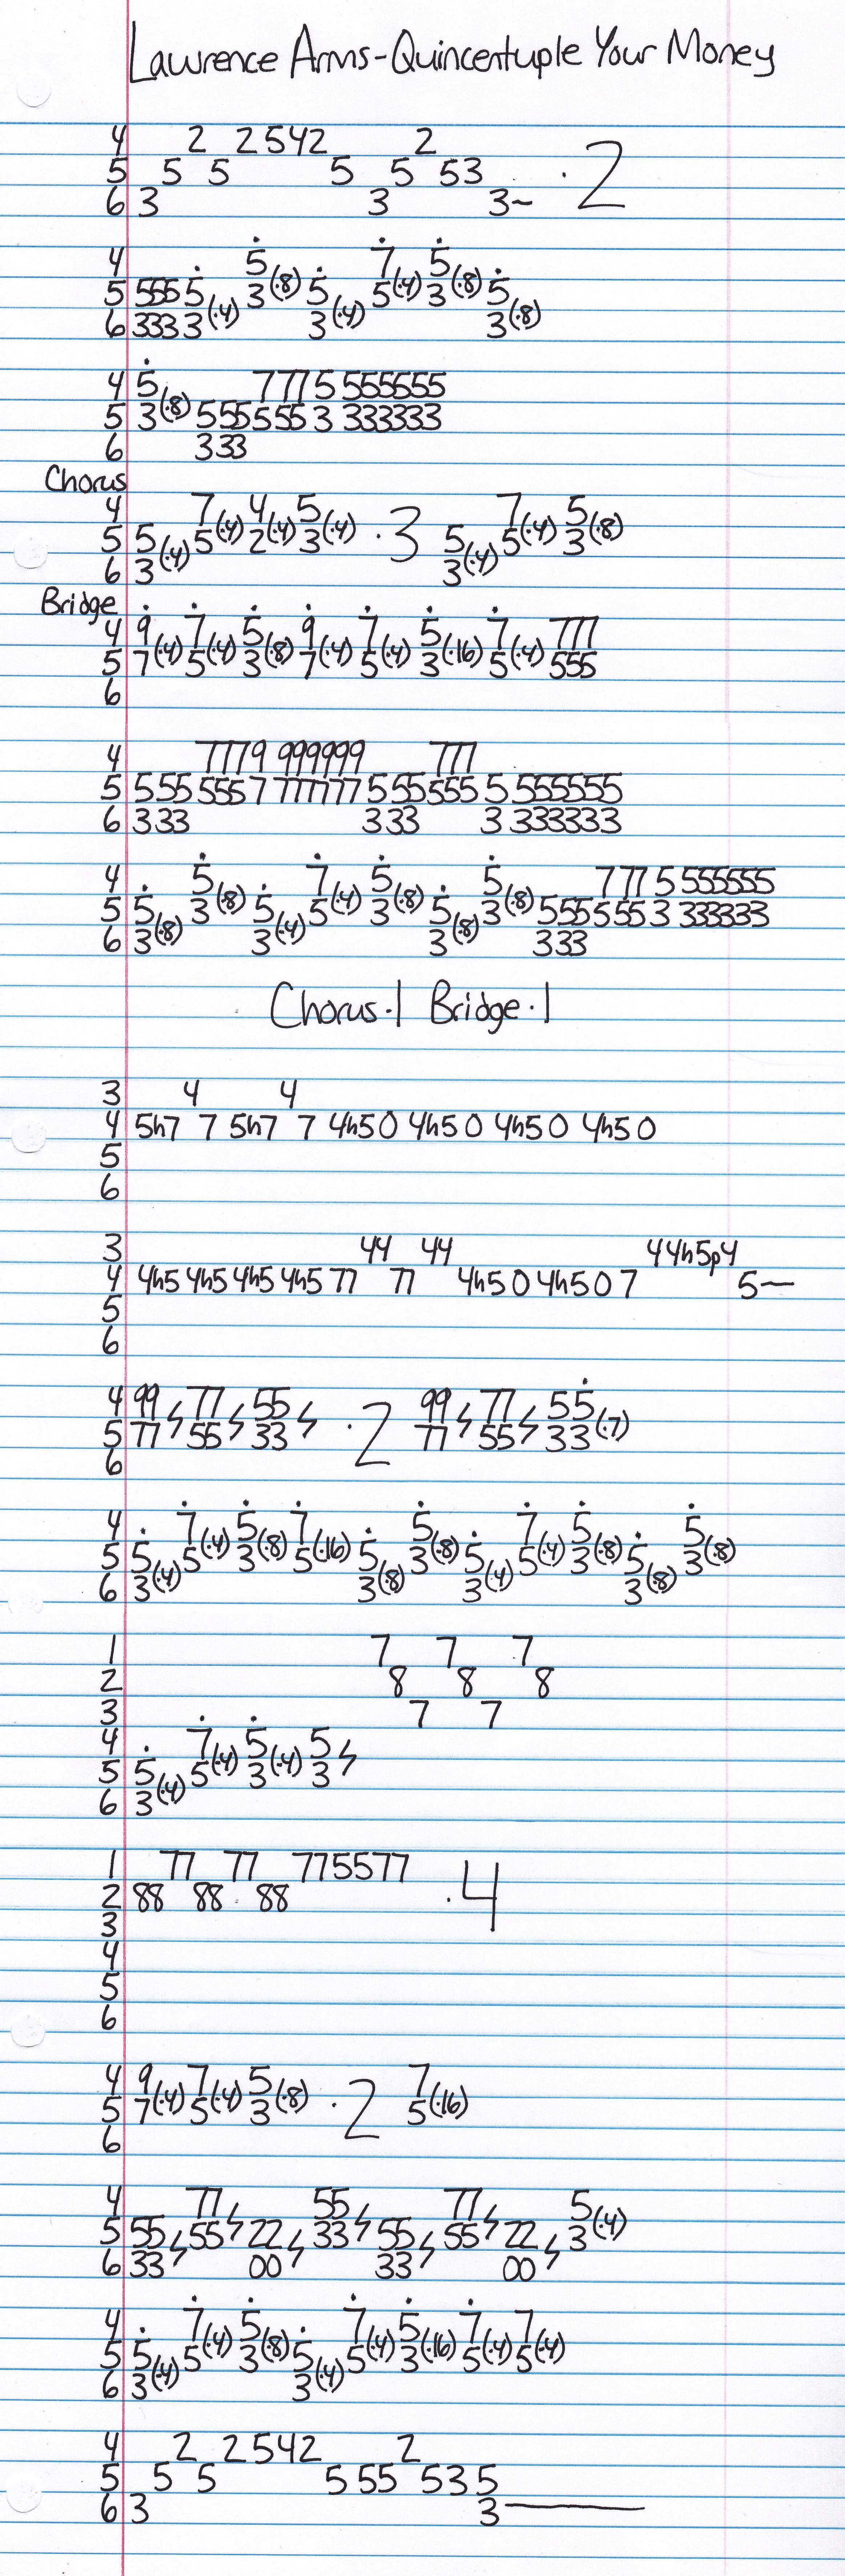 Lawrence Arms-Quincentuple Your Money
4 2 2 5 4 2 2
5 5 5 5 5 5 3 · 2
6 3 3 3~
4 5 7 5
5 555 5 (·4) 3 (·8) 5 (·4) 5 (·4) 3 (·8) 5 (·8)
6 333 3 3 3
4 5 777 5 555555
5 3 (·8) 555 555 3 333333
6 333
Chorus
4 7 4 5 7 5
5 5 (·4) 5 (·4) 2 (·4) 3 (·4) · 3 5 (·4) 5 (·4) 3 (·8)
6 3 3
Bridge
4 9 7 5 9 7 5 7 777
5 7 (·4) 5 (·4) 3 (·8) 7 (·4) 5 (·4) 3 (·16) 5 (·4) 555
6
4 7779 999999 777
5 555 5557 777777 555 555 5 555555
6 333 333 3 333333
4 5 7 5 5 777 5 555555
5 5 (·8) 3 (·8) 5 (·4) 5 (·4) 3 (·8) 5 (·8) 3 (·8) 555 555 3 333333
6 3 3 3 333
Chorus · 1 Bridge · 1
3 4 4
4 5h7 7 5h7 7 4h5 0 4h5 0 4h5 0 4h5 0
5
6
3 44 44 4 4h5p4
4 4h5 4h5 4h5 4h5 77 77 4h5 0 4h5 0 7 5—
5
6
4 99 77 55 99 77 55
5 77 55 33 · 2 77 55 33 (·7)
6
4 7 5 7 5 7 5 5
5 5 (·4) 5 (·4) 3 (·8) 5 (·16) 5 (·8) 3 (·8) 5 (·4) 5 (·4) 3 (·8) 5 (·8) 3 (·8)
6 3 3 3 3
1 7 7 7
2 8 8 8
3 7 7
4 7 5 5
5 5 (·4) 5 (·4) 3 (·4) 3
6 3
1 77 77 775577
2 88 88 88 · 4
3
4
5
6
4 9 7 5 7
5 7 (·4) 5 (·4) 3 (·8) · 2 5 (·16)
6
4 77 55 77 5
5 55 55 22 33 55 55 22 3 (·4)
6 33 00 33 00
4 7 5 7 5 7 7
5 5 (·4) 5 (·4) 3 (·8) 5 (·4) 5 (·4) 3 (·16) 5 (·4) 5 (·4)
6 3 3
4 2 2 5 4 2 2
5 5 5 5 55 5 3 5
6 3 3—